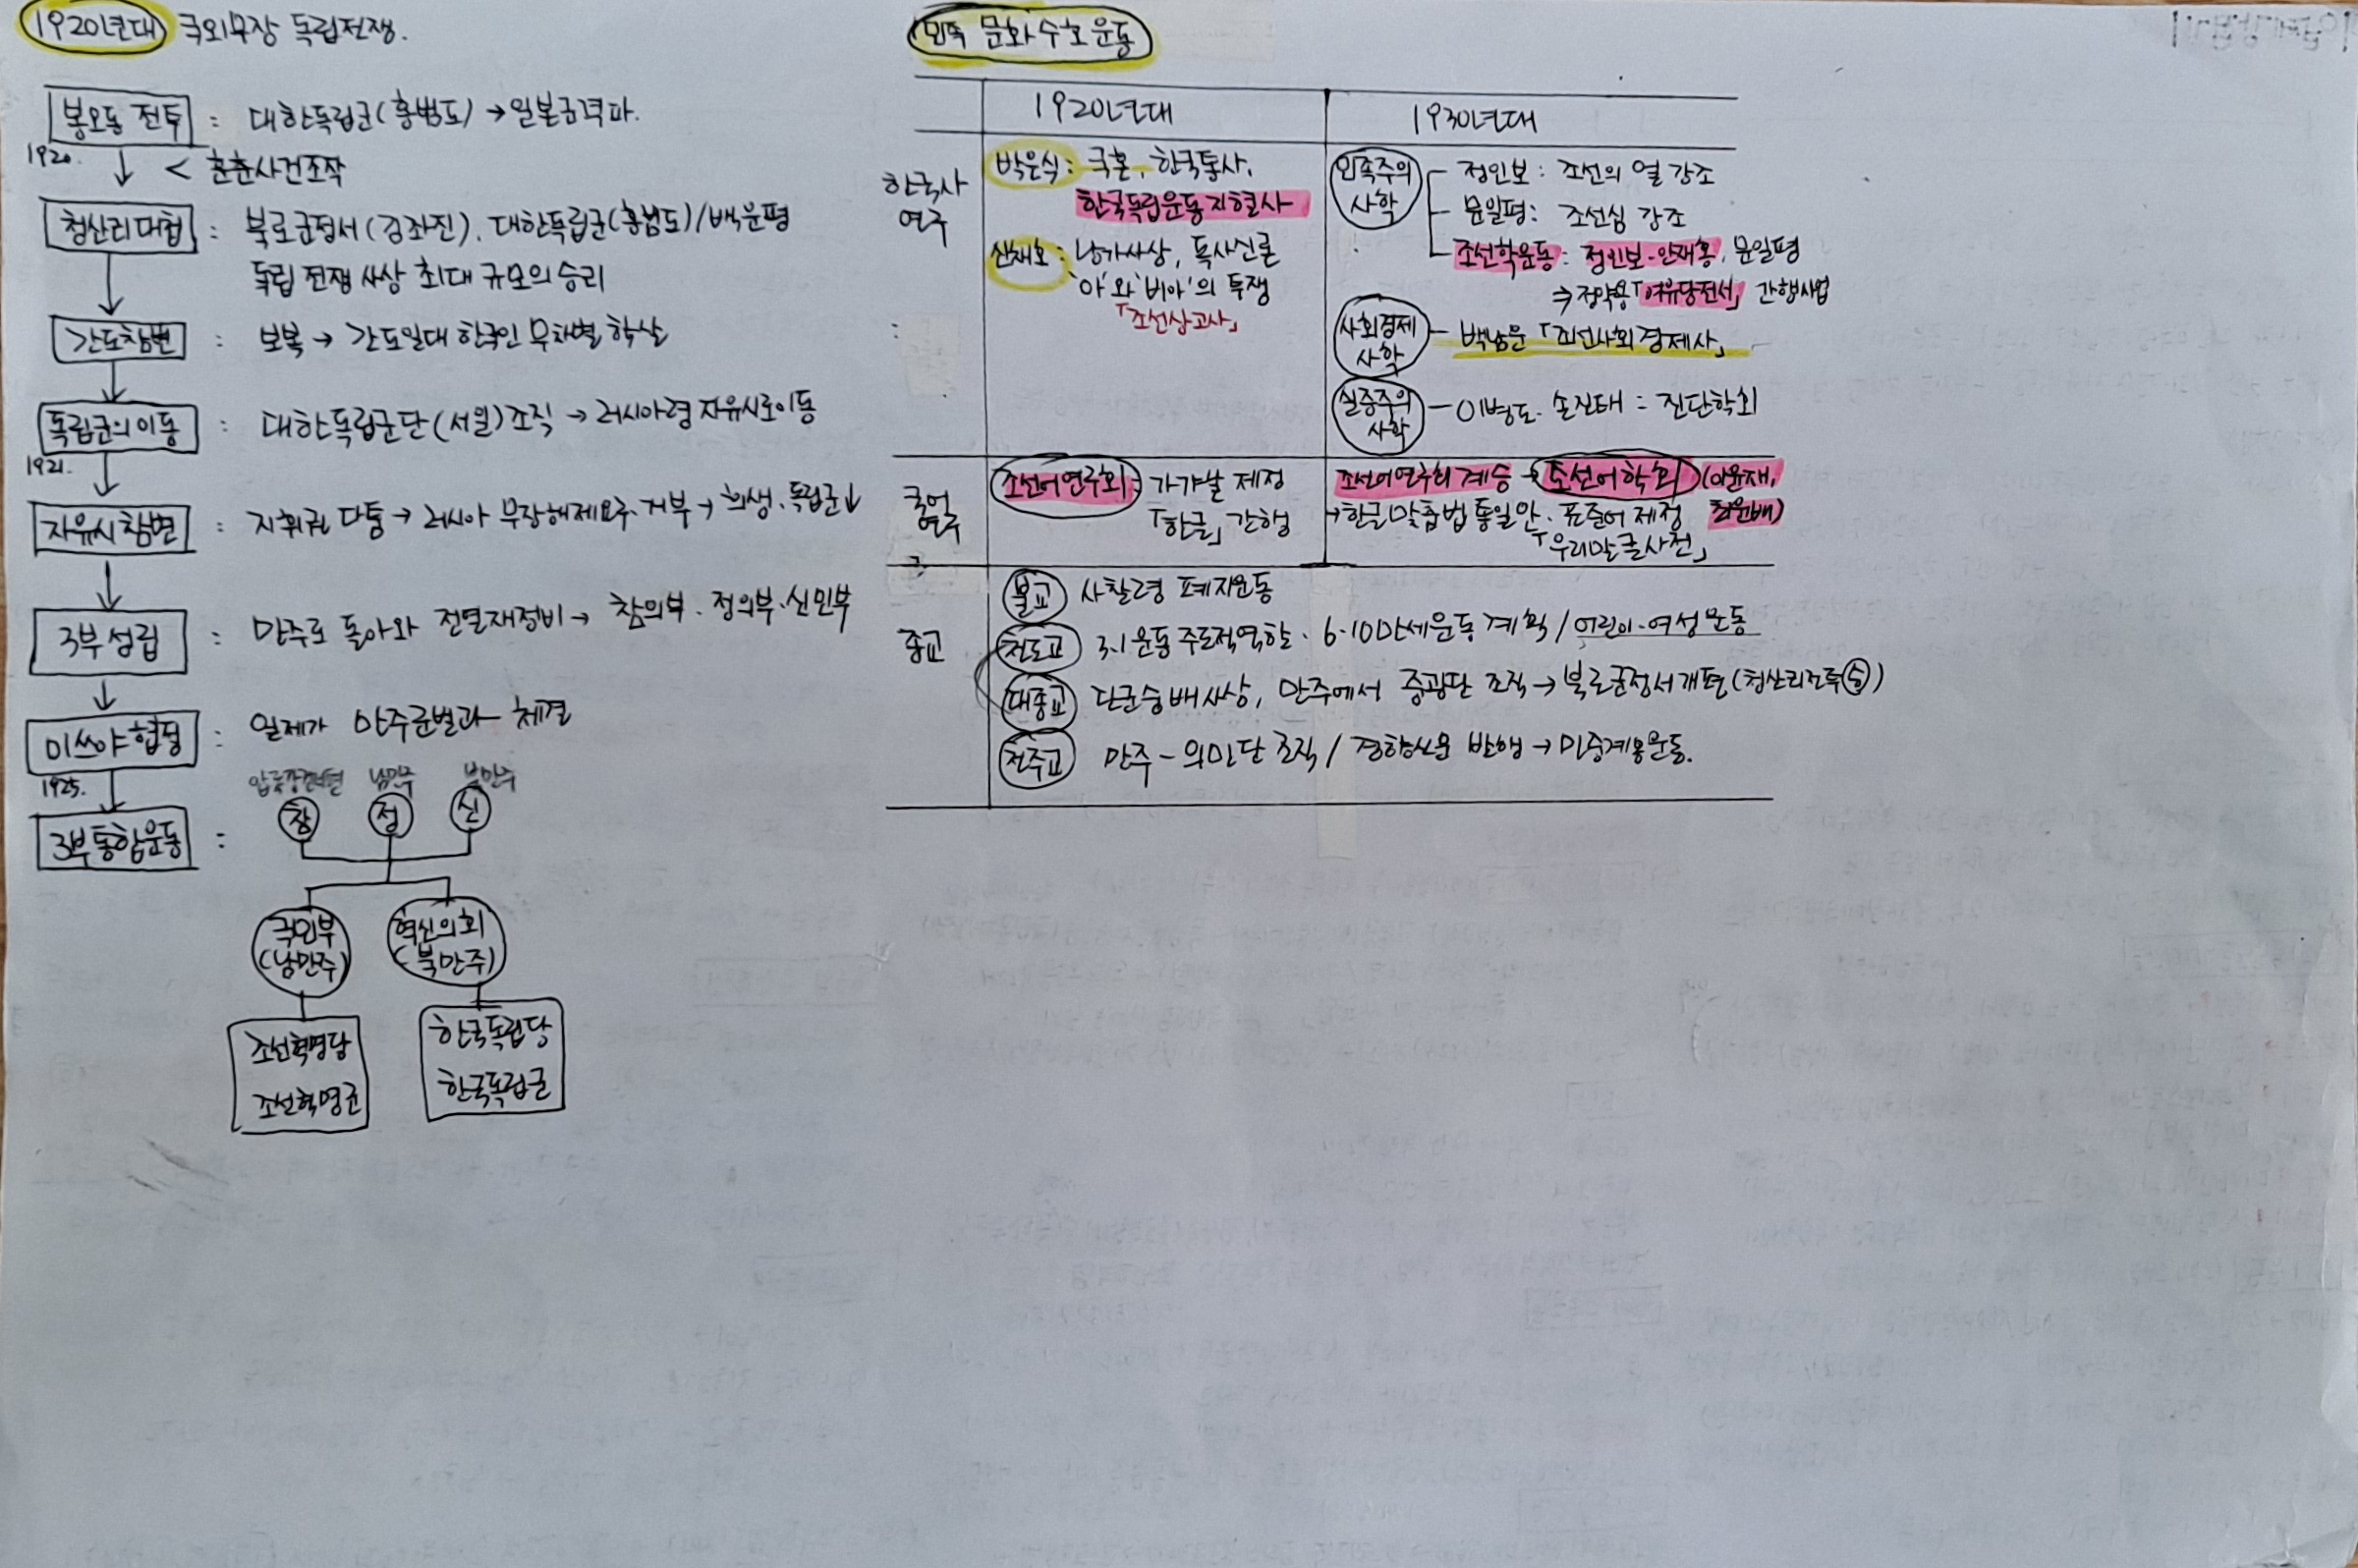 1920년대 국외무장 독립전쟁.
봉오동 전투 : 대한독립군(홍범도) → 일본군격파.
1920.
< 훈춘사건조작
청산리대첩 : 북로군정서(김좌진), 대한독립군(홍범도)/백운평
독립 전쟁 사상 최대 규모의 승리
간도참변 : 보복 → 간도일대 한국인 무차별 학살
독립군의 이동 : 대한독립군단(서일)조직 → 러시아령 자유시로이동
1921.
자유시참변 : 지휘권 다툼 → 러시아 무장해제요구·거부 → 희생·독립군↓
3부 성립 : 만주로 돌아와 전열재정비 → 참의부·정의부·신민부
미쓰야 협정 : 일제가 만주군벌과 체결
1925.
남만주 북만주
3부통합운동 : 참 정 신
국민부 혁신의회
(남만주) (북만주)
조선혁명당 한국독립당
조선혁명군 한국독립군
민족 문화수호운동
1920년대 1930년대
한국사
연구
박은식 : 국혼, 한국통사,
한국독립운동지혈사
신채호 : 낭가사상, 독사신론
'아'와 '비아'의 투쟁
「조선상고사」
민족주의
사학
정인보 : 조선의 얼 강조
문일평 : 조선심 강조
조선학운동 : 정인보·안재홍, 문일평
⇒ 정약용「여유당전서」 간행사업
사회경제
사학
— 백남운 「조선사회경제사」
실증주의
사학
— 이병도·손진태 = 진단학회
국어
연구
조선어연구회 = 가갸날 제정
「한글」 간행
조선어연구회 계승 → 조선어학회 (이윤재,
→ 한글맞춤법통일안·표준어 제정 최현배)
「우리말글사전」
종교
불교 사찰령 폐지운동
천도교 3.1운동 주도적역할·6·10만세운동 계획/어린이·여성운동
대종교 단군숭배사상, 만주에서 중광단 조직 → 북로군정서개편(청산리전투㊂)
천주교 만주 - 의민단 조직 / 경향신문 발행 → 민중계몽운동.